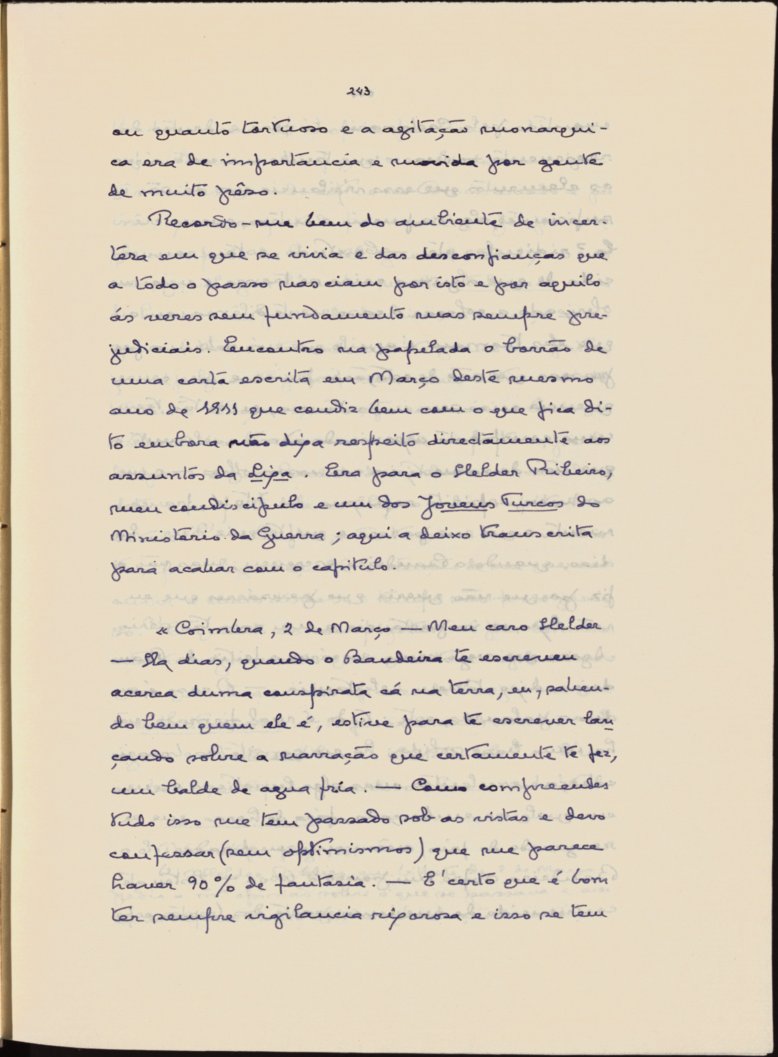 243
ou quanto tortuoso e a agitação monarqui-
ca era de importancia e movida por gente
de muito pêso.
Recordo-me bem do ambiente de incer-
teza em que se vivia e das desconfianças que
a todo o passo nasciam por isto e por aquilo
ás vezes sem fundamento mas sempre pre-
judiciais. Encontro na papelada o borrão de
uma carta escrita em Março deste mesmo
ano de 1911 que condiz bem com o que fica di-
to embora não diga respeito directamente aos
assuntos da Liga. Era para o Helder Ribeiro,
meu condiscipulo e um dos Jovens Turcos do
Ministerio da Guerra; aqui a deixo transcrita
para acabar com o capitulo.
« Coimbra, 2 de Março — Meu caro Helder
— Ha dias, quando o Bandeira te escreveu
acerca duma conspirata cá na terra, eu, saben-
do bem quem ele é, estive para te escrever lan
çando sobre a narração que certamente te fez,
um balde de agua fria. — Como compreendes
tudo isso me tem passado sob as vistas e devo
confessar (sem optimismos) que me parece
haver 90% de fantasia. — E' certo que é bom
ter sempre vigilancia rigorosa e isso se tem